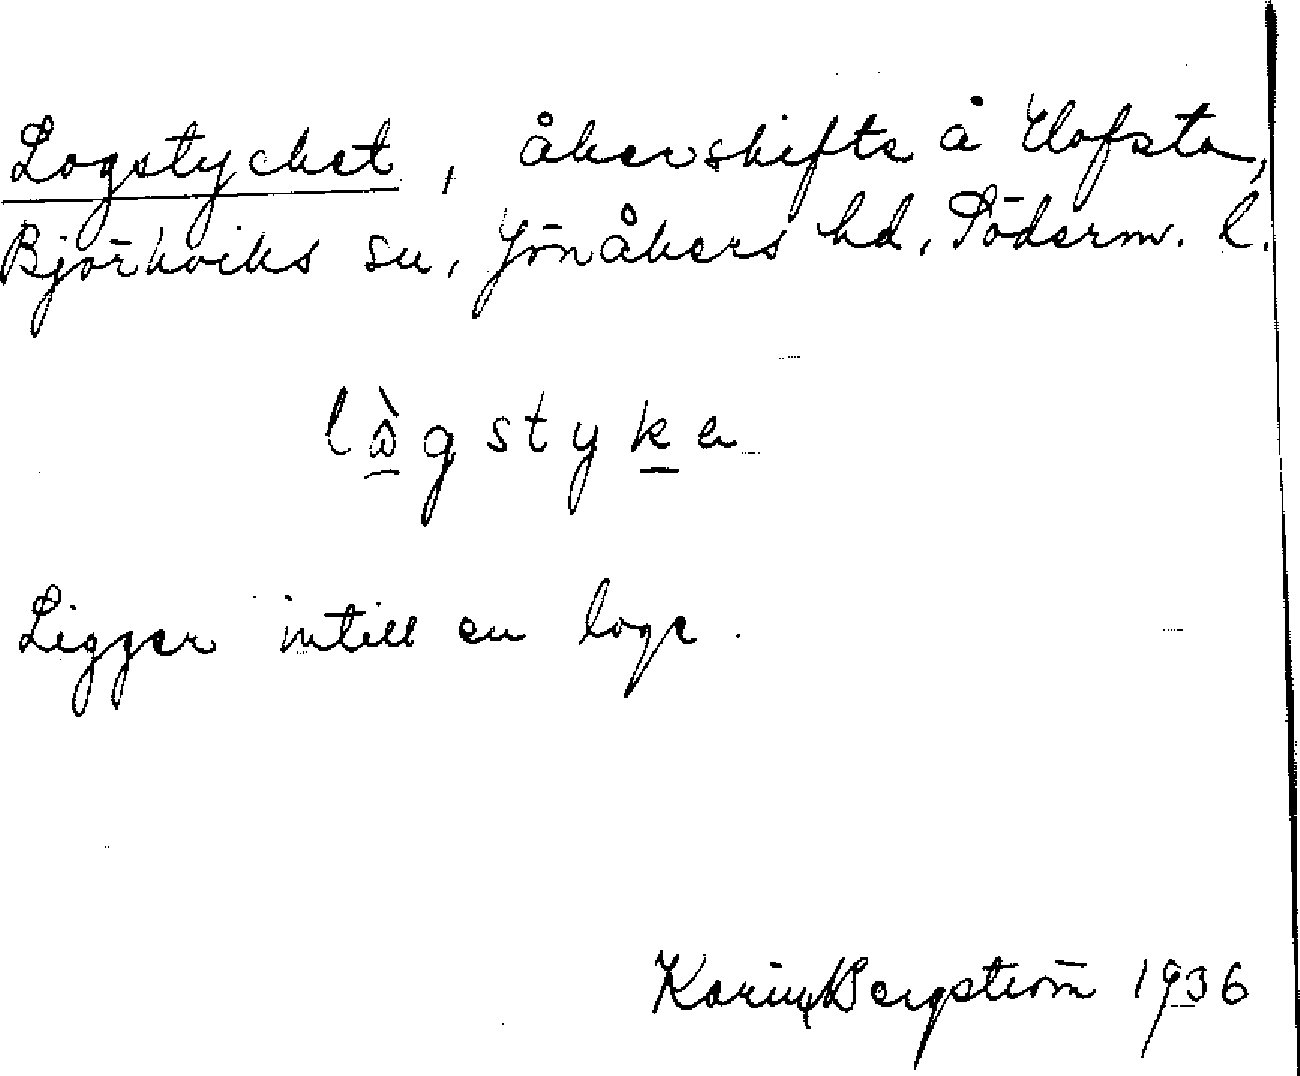 Logstycket, åkerskifte å Hofsta,
Björkviks sn, Jönåkers hd, Söderm. l.
lå̀gstyke
Ligger intill en loge.
Karin Bergström 1936